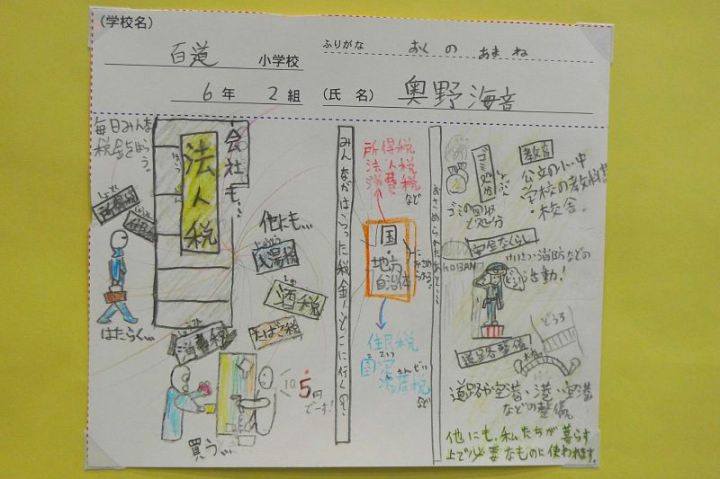 (学校名)
百道 小学校
ふりがな おくの あまね
6年 2組 (氏 名) 奥野海音
毎日みんな
税金を払う。
会社も…
法人税
所得税
住民税
はたらく…
他にも…
入湯税
酒税
たばこ税
消費税
105円
でーす!
買う…
みんながはらった税金…どこに行くの?
所得税
法人税
消費税
など
国・
地方
自治体
住民税
固定
資産税
など
おさめられたお金で…
ゴミ処理
ゴミの回収
や処分
教育
公立の小・中
学校の教科書
・校舎
安全なくらし
KOBAN
けいさつ・消防などの
活動!
どうろ
道路整備
道路や空港・港・空港
などの整備。
他にも、私たちが暮らす
上で必要なものに使われます。